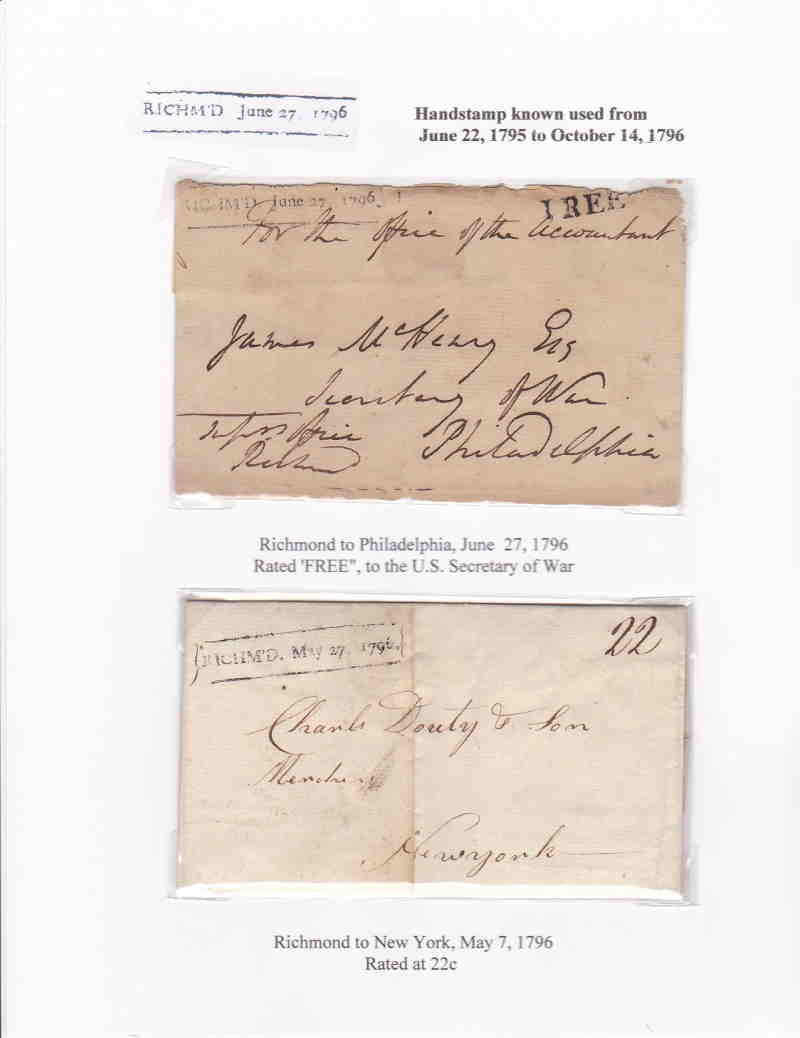 RICHM'D June 27, 1796
Handstamp known used from
June 22, 1795 to October 14, 1796
RICHM'D June 27, 1796
FREE
For the Office of the Accountant
James McHenry Esq
Secretary of War
Office
Philadelphia
Richmond to Philadelphia, June 27, 1796
Rated 'FREE", to the U.S. Secretary of War
RICHM'D. May 27, 1796.
22
Charls Douty & Son
Newyork
Richmond to New York, May 7, 1796
Rated at 22c